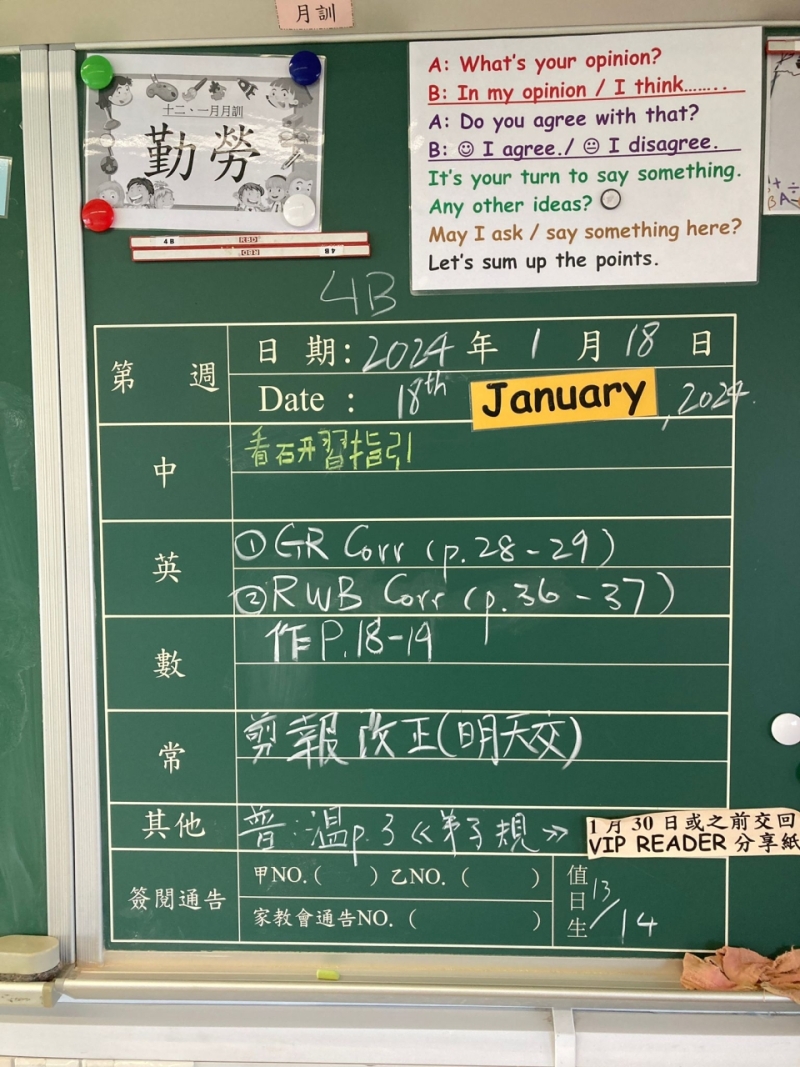 月訓
十二、一月月訓
勤勞
4B RBD
4B RBD
A: What's your opinion?
B: In my opinion / I think........
A: Do you agree with that?
B: ☺ I agree./ 😐 I disagree.
It's your turn to say something.
Any other ideas?
May I ask / say something here?
Let's sum up the points.
4B
第 週
日 期: 2024 年 1 月 18 日
Date : 18th January, 2024.
中
看研習指引
英
① GR Corr (p.28-29)
② RWB Corr (p.36-37)
數
作P.18-19
常
剪報改正(明天交)
其他
普:溫p.3《弟子規》
1 月 30 日或之前交回
VIP READER 分享紙
簽閱通告
甲NO.( ) 乙NO. ( )
家教會通告NO. ( )
值日生 13/14